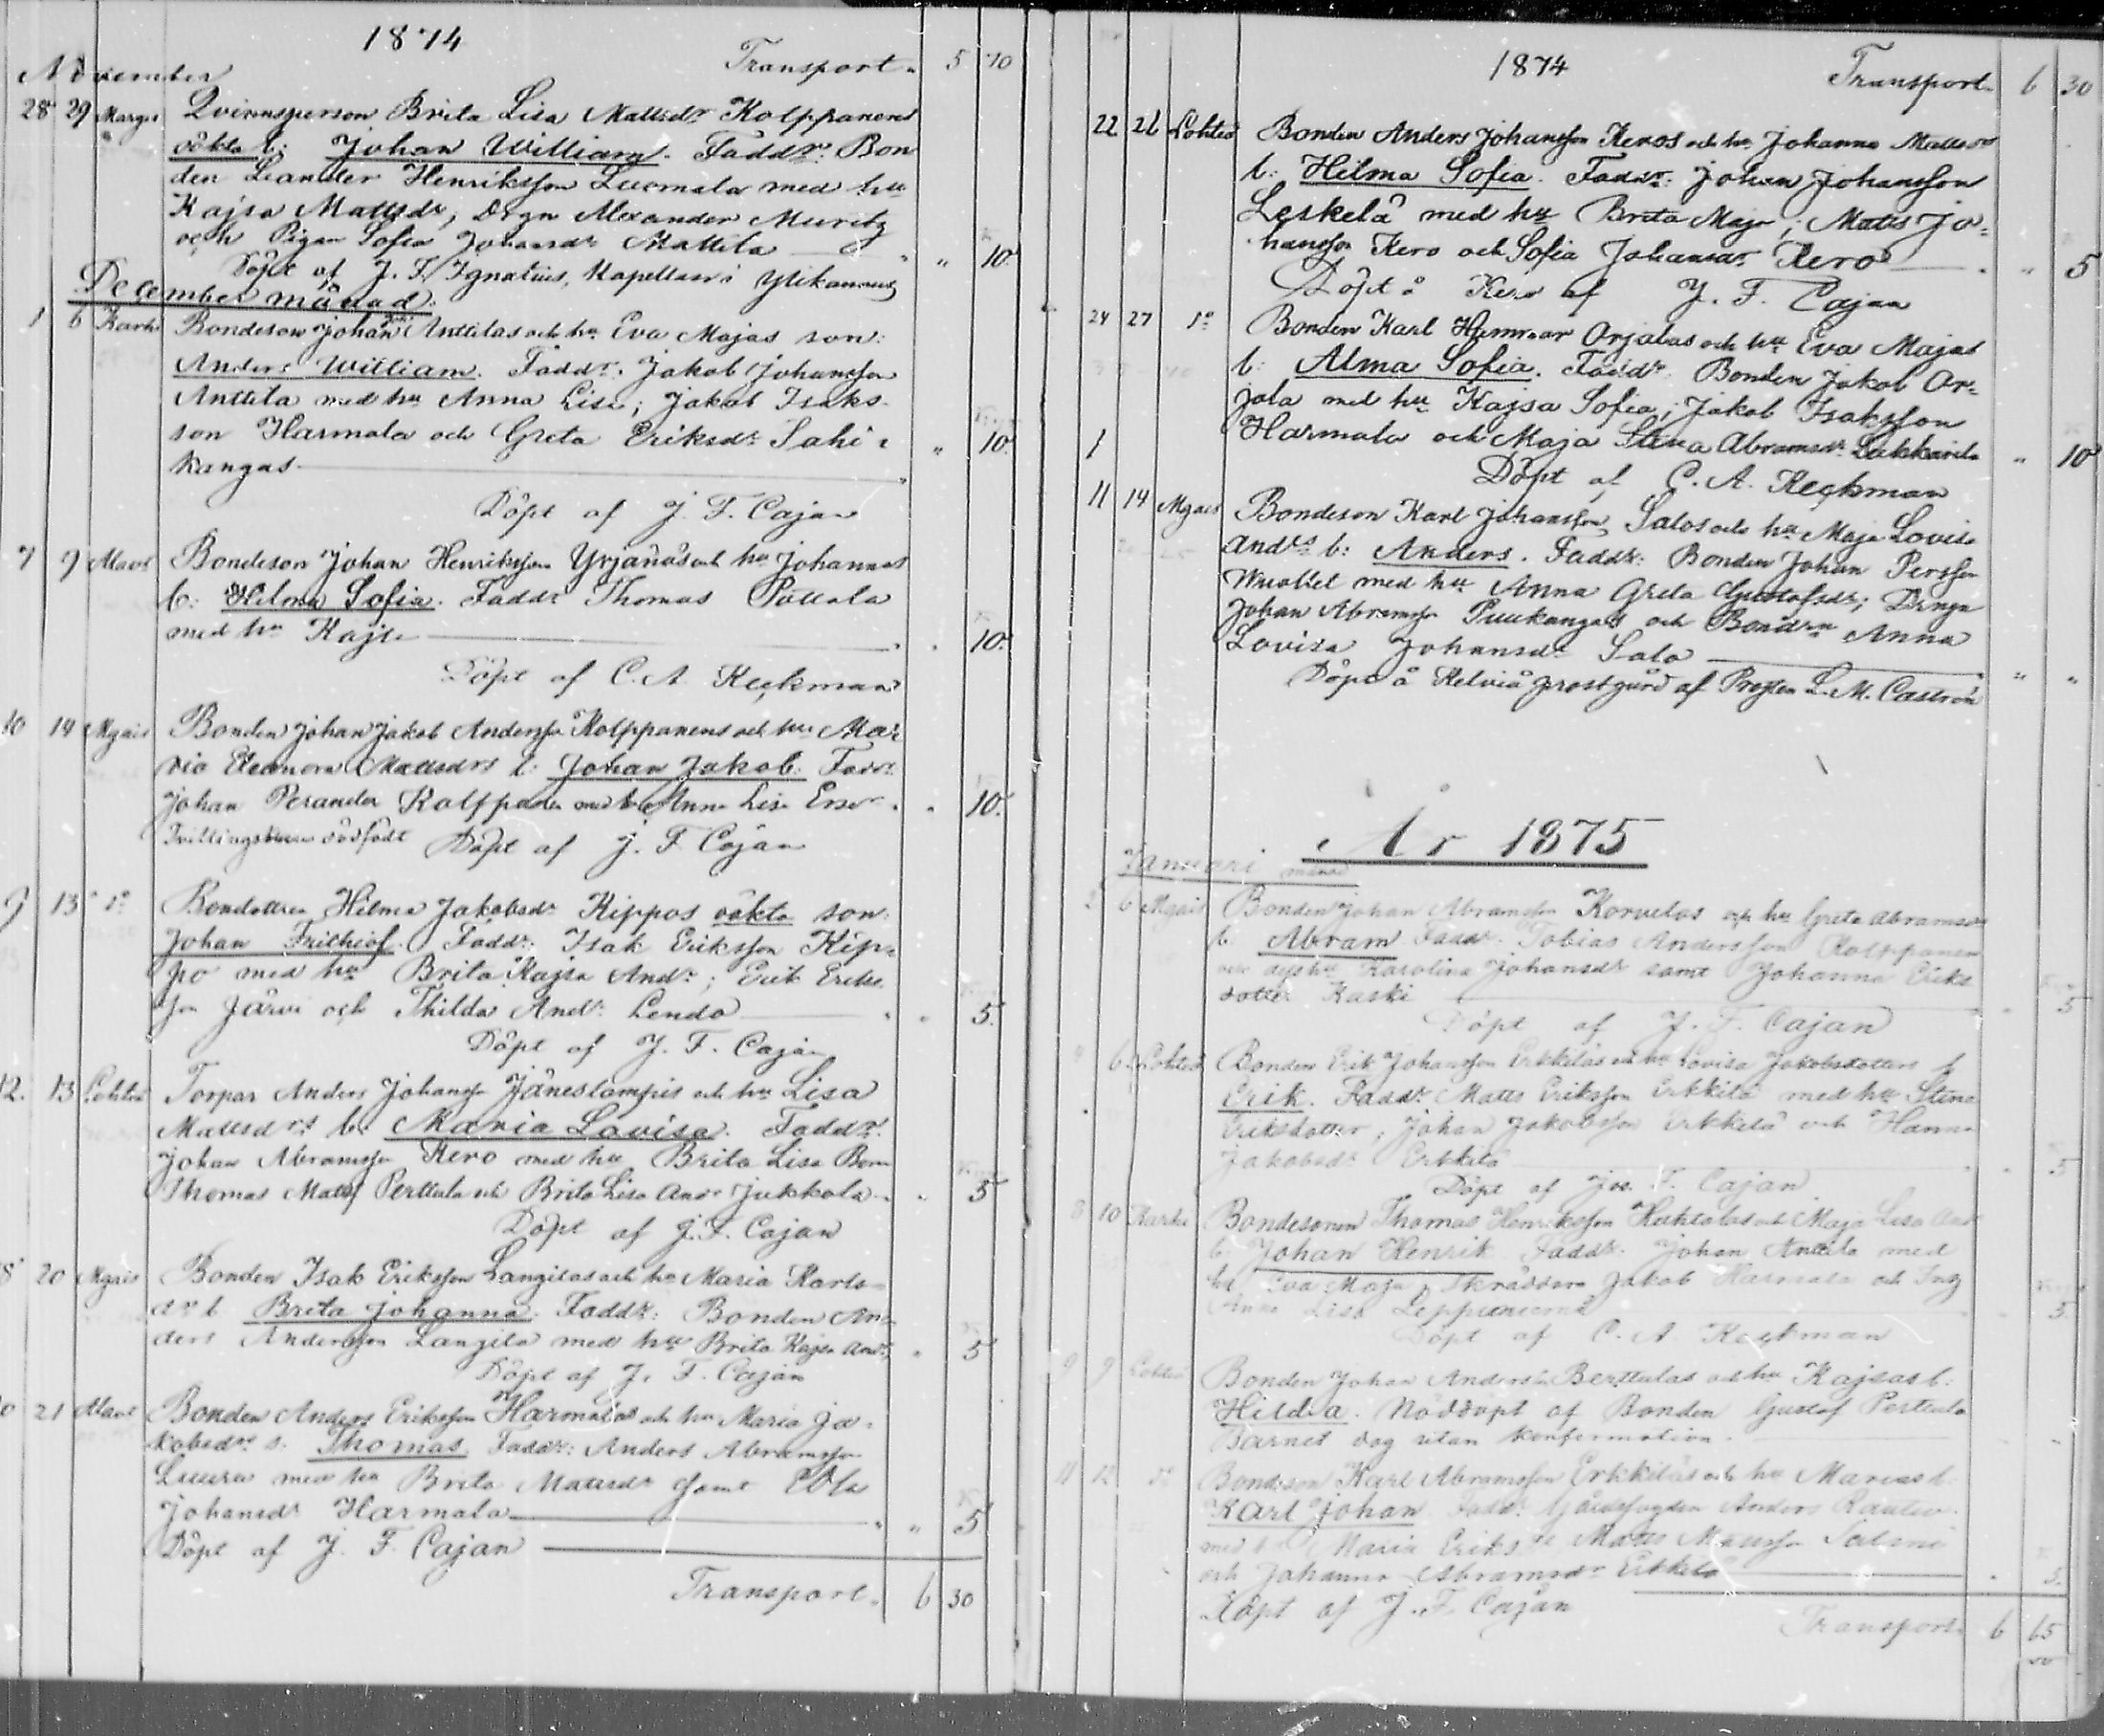 1874
Transport. 5 70
November
28 29 Margis Qvinnsperson Brita Lisa Mattsdr Kolppanens
oäkta b: Johan William. Faddr: Bon
den Leander Henriksson Luomala med hu
Kajsa Mattsdr, Drgn Alexander Muritz
och Pigan Sofia Johansdr Mattila " 10.
Döpt af J. F. Ignatius, Kapellan i Ylikannus
December månad.
1 6 Karhi Bondeson Johan Anttilas och hu Eva Majas son:
Anders William. Faddr. Jakob Johansson
Anttila med hu Anna Lisa; Jakob Isaks
son Harmala och Greta Eriksdr Sahi " 10.
kangas
Döpt af J. F. Cajan
7 9 Alavi Bondeson Johan Henriksson Yrjänäs och hu Johannas
b: Hilma Sofia. Faddr Thomas Pottala
med hu Kajsa 10.
Döpt af C. A. Keckman
10 14 Mgais Bonden Johan Jakob Anderss Kolppanens och hu Mar
via Eleanora Mattsdrs b: Johan Jakob. Faddr
Johan Perander Kolppanen med h Anna Lisa Ersdr 10.
Tvillingsbarn dödfödt Döpt af J. F. Cajan
9 13 do Bondottren Hilma Jakobsdr Kippos oäkta son:
Johan Frithiof. Faddr. Isak Eriksson Kip=
po med hu Brita Kajsa Andr; Erik Eriks
son Järvi och Thilda Andr. Lendo 5.
Döpt af J. F. Cajan
12. 13 Lohteå Torpar Anders Johanss Jäneslampis och hu Lisa
Mattsdrs b: Maria Lovisa. Faddr.
Johan Abramss Kero med hu Brita Lisa Bon
Thomas Matts Perttula och Brita Lisa Andr Jukkola 5
Döpt af J. F. Cajan
8 20 Mgais Bonden Isak Eriksson Langilas och hu Maria Karls=
dr b Brita Johanna. Faddr: Bonden An=
ders Andersson Langila med hu Brita Kajsa Andr, " 5
Döpt af J. F. Cajan
0 21 Alavi Bonden Anders Eriksson Harmalas och hu Maria Ja=
kobsdrs s. Thomas. Faddr: Anders Abramsson
med hu Brita Mattsdr samt
Johansdr Harmala " 5
Döpt af J. F. Cajan
Transport. 6 30
1874
Transport 6 30
22 26 Lohteå Bonden Anders Johansson Keros och hu Johanna Mattsdrs
b: Hilma Sofia. Faddr: Johan Johansson
Leskelä med hu Brita Maja; Matts Jo=
hansson Kero och Sofia Johansdr. Kero " 5
Döpt å Kero af J. F. Cajan
24 27 do Bonden Karl Hammar Orjalas och hu Eva Majas
b: Alma Sofia. Faddr. Bonden Jakob Or=
jala med hu Kajsa Sofia; Jakob Isaksson
1 Harmala och Maja Stina Abramsdr. Lukkarila " 10
Döpt af C. A. Keckman
11 14 Mgais Bondeson Karl Johansson Salos och hu Maja Lovisa
Andrs b: Anders. Faddr: Bonden Johan Persson
med hu Anna Greta Gustafsdr; Drngn
Johan Abramss Puukangas och Bondrn Anna
Lovisa Johansdr Salo " "
Döpt å Kelviå prostgård af Prosten L. M. Castrén
År 1875
Januari månad
2 6 Mgais Bonden Johan Abramsson Korvelas och hu Greta Abramsdr
b. Abram Faddr. Tobias Andersson Kolppanen
och dess hu Karolina Johansdr samt Johanna Eriks
dotter Kaski 5
Döpt af J. F. Cajan
4 6 Lohteå Bonden Erik Johansson Erkkiläs och hu Lovisa Jakobsdotters b
Erik. Faddr. Matts Eriksson Erkkilä med hu Stina
Eriksdotter; Johan Jakobsson Erkkilä och Hanna
Jakobsdr. Erkkilä 5
Döpt af Jos. F. Cajan
8 10 Karhi Bondesonen Thomas Henriksson Huhtalas och Maja Lisa Andr
b. Johan Henrik Faddr. Johan Anttila med
hu Eva Maja, Skräddarn Jakob Harmala och
Anna Lisa 5.
Döpt af C. A. Keckman
9 9 Lohteå Bonden Johan Anderss Berttulas och hu Kajsas b.
Hilda. Nöddöpt af Bonden Gustaf Perttula
Barnet dog utan konfirmation.
11 12 do Bondeson Karl Abramsson Erkkiläs och hu Marias b.
Karl Johan Faddr. Anders Rautio
med h Maria Eriksdr Matts Matsson Salmi
och Johanna Abramsdr Erkkilä 5.
Döpt af J. F. Cajan
Transport 6 65